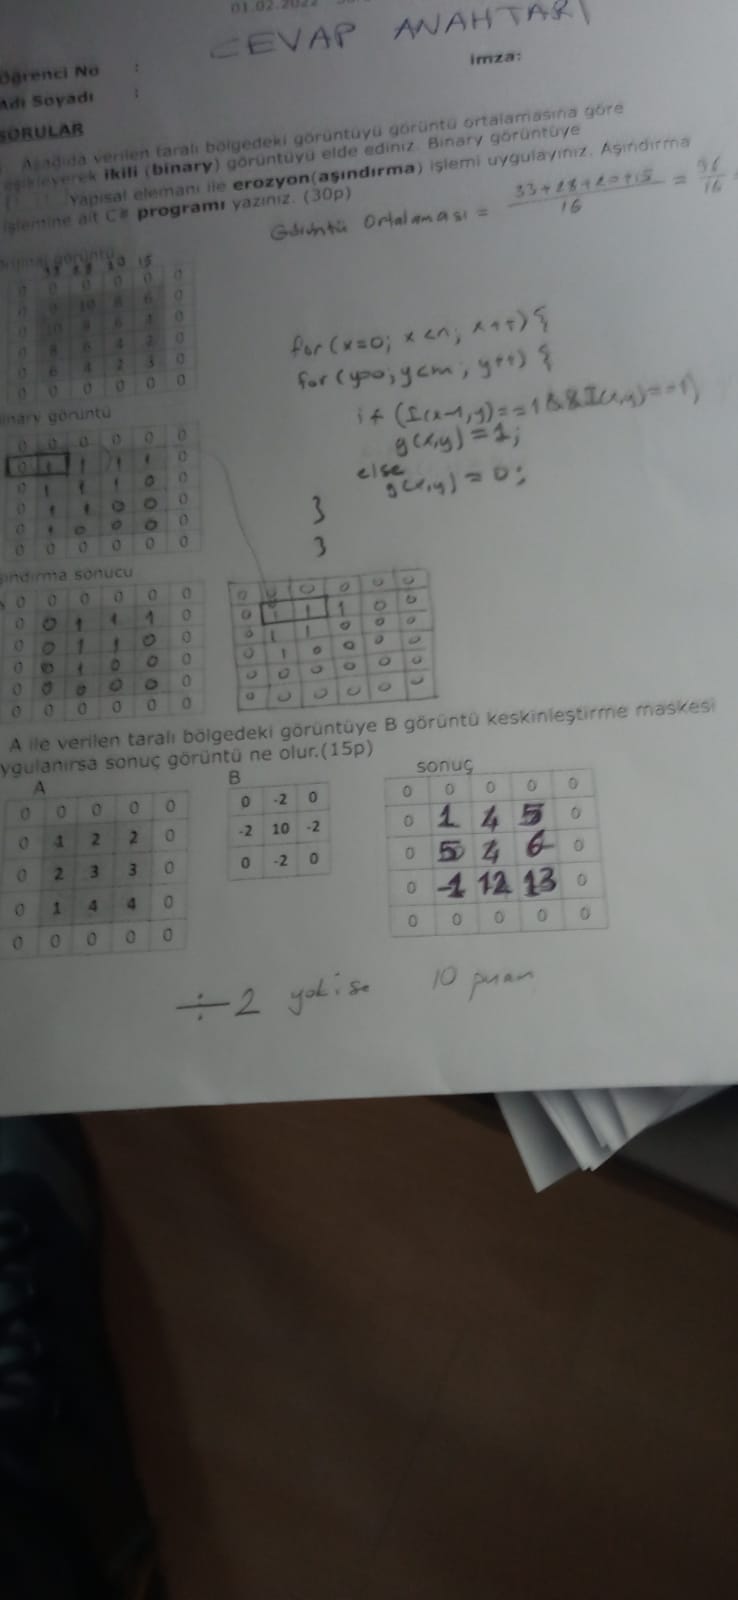 01.02.2022
CEVAP ANAHTARI
Öğrenci No :
İmza:
Adı Soyadı :
SORULAR
Aşağıda verilen taralı bölgedeki görüntüyü görüntü ortalamasına göre
eşikleyerek ikili (binary) görüntüyü elde ediniz. Binary görüntüye
yapısal elemanı ile erozyon(aşındırma) işlemi uygulayınız. Aşındırma
işlemine ait C# programı yazınız. (30p)
Görüntü Ortalaması = 33+28+20+15 / 16 = 96 / 16 =
görüntü
33 28 20 15
0 0 0 0 0 0
0 9 10 8 6 0
0 10 8 6 4 0
0 8 6 4 2 0
0 6 4 2 3 0
0 0 0 0 0 0
for (x=0; x<n; x++) {
for (y=0; y<m; y++) {
if (I(x-1,y)==1 && I(x,y)==1)
g(x,y)=1;
else
g(x,y)=0;
}
}
binary görüntü
0 0 0 0 0 0
0 1 1 1 1 0
0 1 1 1 0 0
0 1 1 0 0 0
0 1 0 0 0 0
0 0 0 0 0 0
aşındırma sonucu
0 0 0 0 0 0
0 0 1 1 1 0
0 0 1 1 0 0
0 0 1 0 0 0
0 0 0 0 0 0
0 0 0 0 0 0
0 0 0 0 0 0
0 1 1 1 0 0
0 1 1 0 0 0
0 1 0 0 0 0
0 0 0 0 0 0
0 0 0 0 0 0
A ile verilen taralı bölgedeki görüntüye B görüntü keskinleştirme maskesi
uygulanırsa sonuç görüntü ne olur.(15p)
A
0 0 0 0 0
0 1 2 2 0
0 2 3 3 0
0 1 4 4 0
0 0 0 0 0
B
0 -2 0
-2 10 -2
0 -2 0
sonuç
0 0 0 0 0
0 1 4 5 0
0 5 4 6 0
0 -1 12 13 0
0 0 0 0 0
÷2 yok ise 10 puan